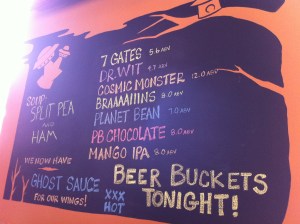 7 GATES 5.6 ABV
DR. WIT 4.7 ABV
COSMIC MONSTER 12.0 ABV
BRAAAIIINS 8.0 ABV
PLANET BEAN 7.0 ABV
PB CHOCOLATE 8.0 ABV
MANGO IPA 8.0 ABV
SOUP
SPLIT PEA
AND
HAM
WE NOW HAVE
GHOST SAUCE
FOR OUR WINGS!
XXX
HOT
BEER BUCKETS
TONIGHT!